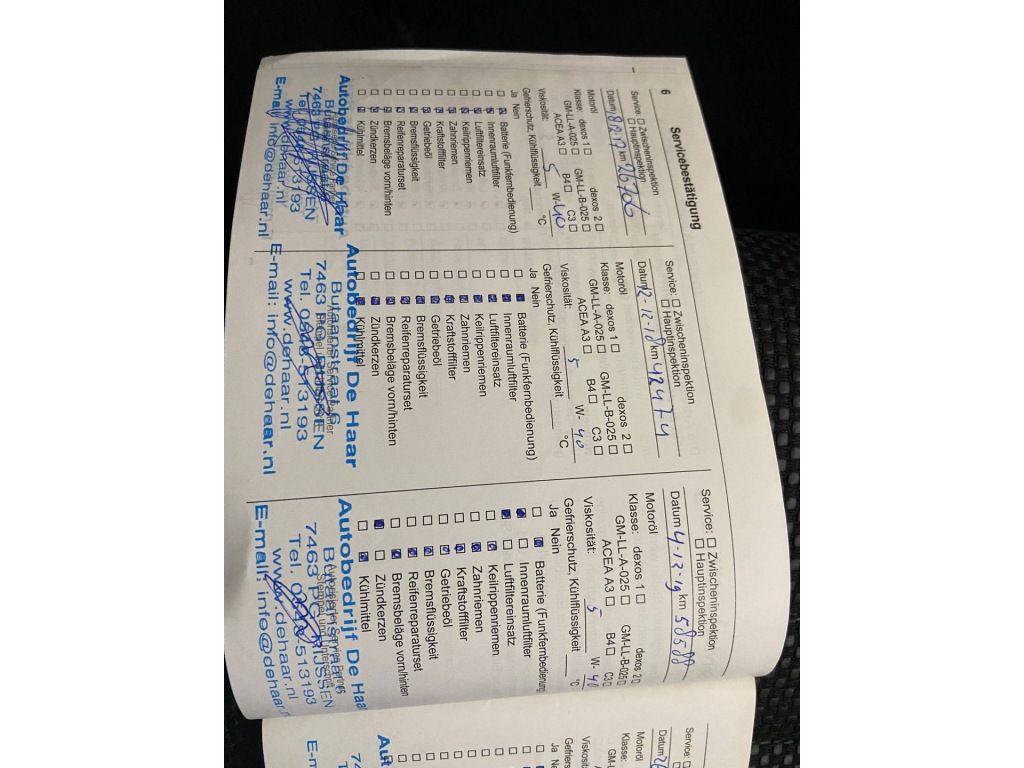 6
Servicebestätigung
Service: Zwischeninspektion
Hauptinspektion
Datum km 26706
Motoröl
Klasse: dexos 1 dexos 2
GM-LL-A-025 GM-LL-B-025
ACEA A3 B4 C3
Viskosität: 5 W- 40
Gefrierschutz, Kühlflüssigkeit °C
Ja Nein
Batterie (Funkfernbedienung)
Innenraumluftfilter
Luftfiltereinsatz
Keilrippenriemen
Zahnriemen
Kraftstofffilter
Getriebeöl
Bremsflüssigkeit
Reifenreparaturset
Bremsbeläge vorn/hinten
Zündkerzen
Kühlmittel
Autobedrijf De Haar
www.dehaar.nl
E-mail: info@dehaar.nl
Service: Zwischeninspektion
Hauptinspektion
Datum 12-12-18 km 42474
Motoröl
Klasse: dexos 1 dexos 2
GM-LL-A-025 GM-LL-B-025
ACEA A3 B4 C3
Viskosität: 5 W- 40
Gefrierschutz, Kühlflüssigkeit °C
Ja Nein
Batterie (Funkfernbedienung)
Innenraumluftfilter
Luftfiltereinsatz
Keilrippenriemen
Zahnriemen
Kraftstofffilter
Getriebeöl
Bremsflüssigkeit
Reifenreparaturset
Bremsbeläge vorn/hinten
Zündkerzen
Kühlmittel
Autobedrijf De Haar
Butaanstraat 6
7463
Tel. 513193
www.dehaar.nl
E-mail: info@dehaar.nl
Service: Zwischeninspektion
Hauptinspektion
Datum 4-12-19 km 58588
Motoröl
Klasse: dexos 1 dexos 2
GM-LL-A-025 GM-LL-B-025
ACEA A3 B4 C3
Viskosität: 5 W- 40
Gefrierschutz, Kühlflüssigkeit °C
Ja Nein
Batterie (Funkfernbedienung
Innenraumluftfilter
Luftfiltereinsatz
Keilrippenriemen
Zahnriemen
Kraftstofffilter
Getriebeöl
Bremsflüssigkeit
Reifenreparaturset
Bremsbeläge vorn/hinten
Zündkerzen
Kühlmittel
Autobedrijf De Haa
7463 RIJSSEN
Tel. 513193
www.dehaar.nl
E-mail: info@dehaar.n
Service:
Datum
Motoröl
Klasse:
GM-LL
Viskosität:
Gefriers
Ja
Aut
E-m